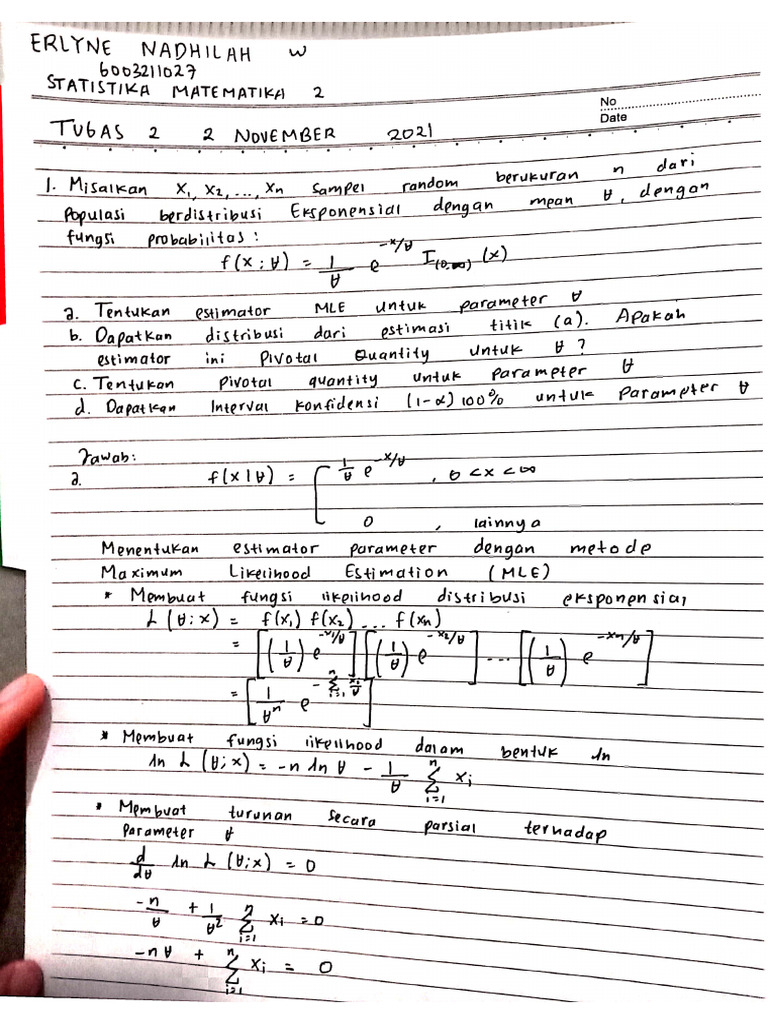 ERLYNE NADHILAH W
6003211027
STATISTIKA MATEMATIKA 2
No
Date
TUGAS 2 2 NOVEMBER 2021
1. Misalkan X₁, X₂, ..., Xn sampel random berukuran n dari
populasi berdistribusi Eksponensial dengan mean θ, dengan
fungsi probabilitas:
f(x;θ) = 1/θ e^(-x/θ) I(0,∞) (x)
a. Tentukan estimator MLE untuk parameter θ
b. Dapatkan distribusi dari estimasi titik (a). Apakah
estimator ini Pivotal Quantity untuk θ?
c. Tentukan pivotal quantity untuk parameter θ
d. Dapatkan Interval konfidensi (1-α)100% untuk parameter θ
Jawab:
a. f(x|θ) = { 1/θ e^(-x/θ) , 0 < x < ∞
0 , lainnya
Menentukan estimator parameter dengan metode
Maximum Likelihood Estimation (MLE)
* Membuat fungsi likelihood distribusi eksponensial
L(θ;x) = f(x₁) f(x₂) ... f(xn)
= [(1/θ) e^(-x₁/θ)] [(1/θ) e^(-x₂/θ)] ... [(1/θ) e^(-xn/θ)]
= [1/θⁿ e^(-Σ_(i=1)^n xi/θ)]
* Membuat fungsi likelihood dalam bentuk ln
ln L(θ;x) = -n ln θ - 1/θ Σ_(i=1)^n xi
* Membuat turunan secara parsial terhadap
parameter θ
d/dθ ln L(θ;x) = 0
-n/θ + 1/θ² Σ_(i=1)^n xi = 0
-nθ + Σ_(i=1)^n xi = 0